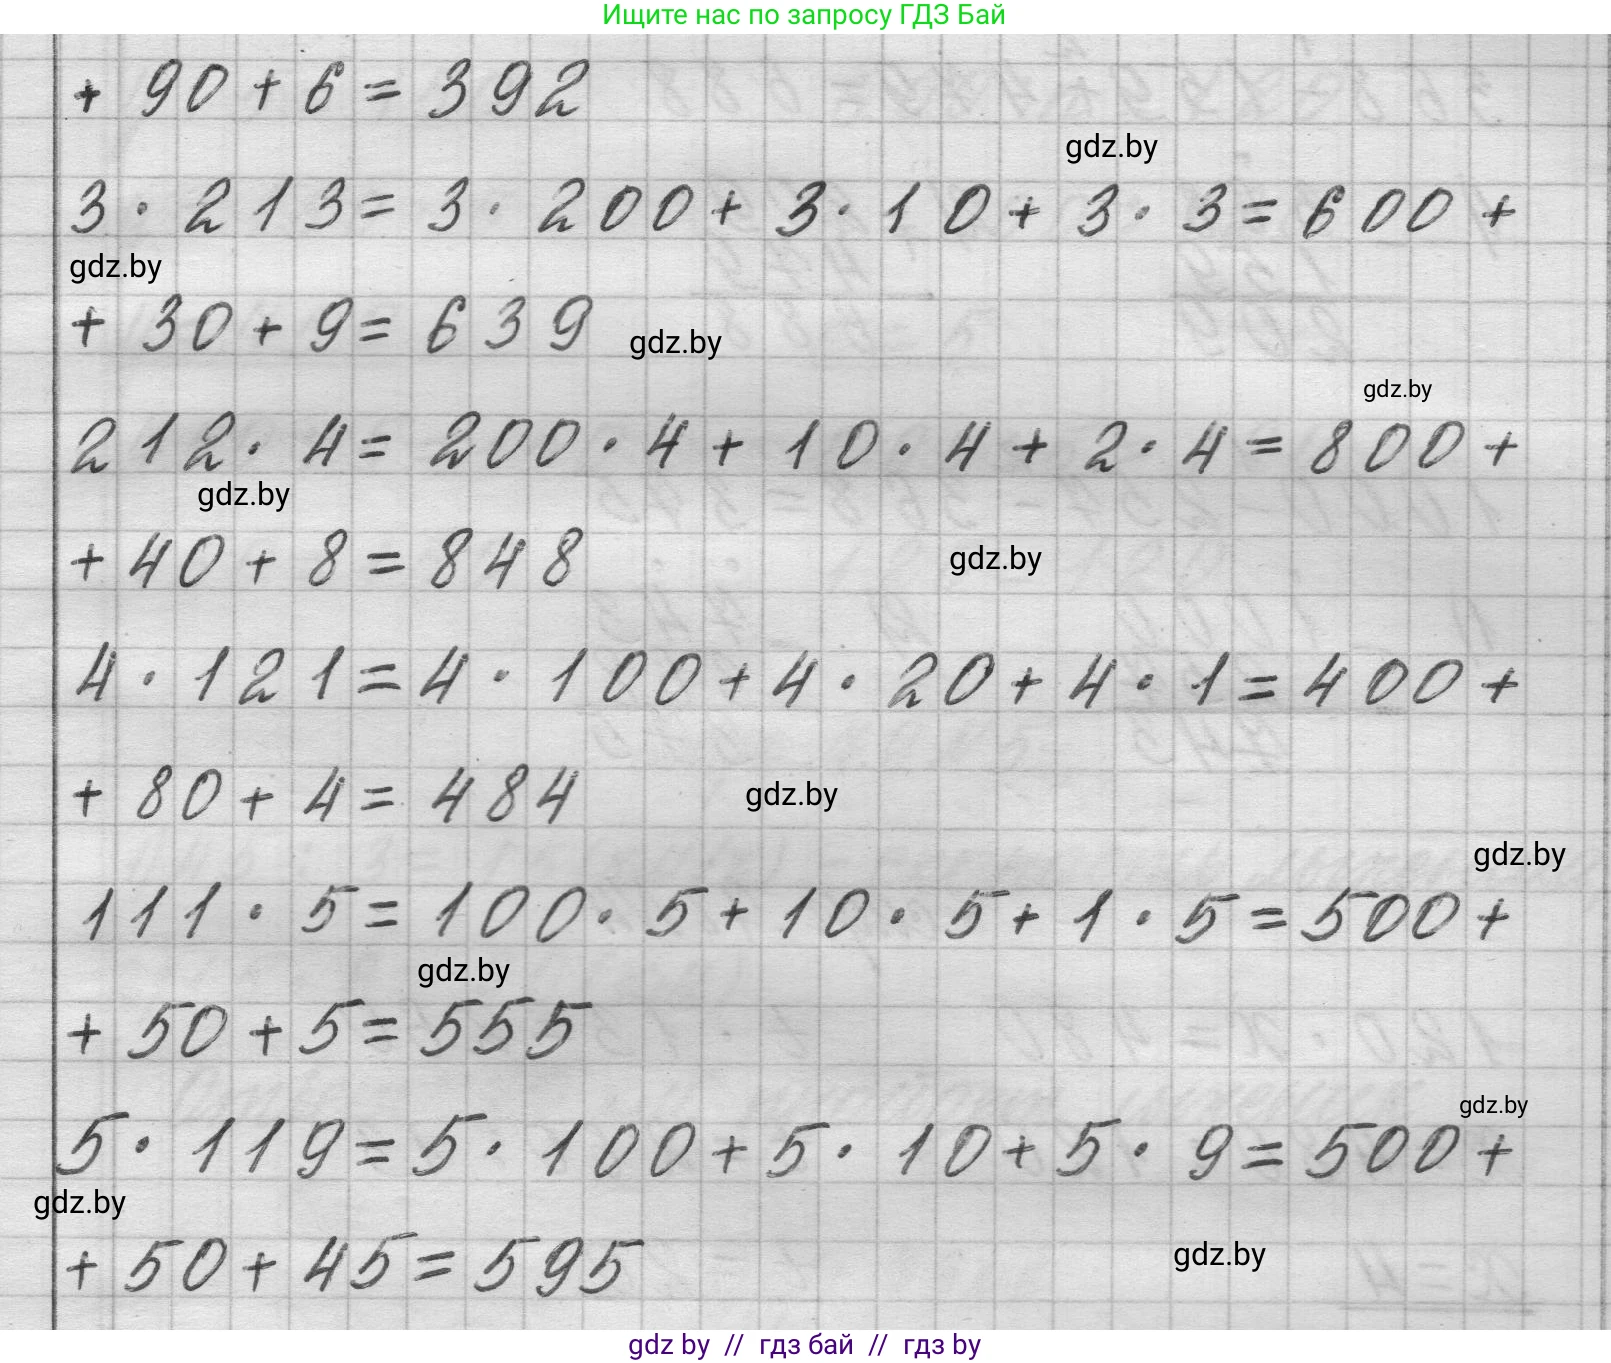 Ищите нас по запросу ГДЗ Бай
+ 90 + 6 = 392
gdz.by
3 · 213 = 3 · 200 + 3 · 10 + 3 · 3 = 600 +
gdz.by
+ 30 + 9 = 639
gdz.by
gdz.by
212 · 4 = 200 · 4 + 10 · 4 + 2 · 4 = 800 +
gdz.by
+ 40 + 8 = 848
gdz.by
4 · 121 = 4 · 100 + 4 · 20 + 4 · 1 = 400 +
+ 80 + 4 = 484
gdz.by
gdz.by
111 · 5 = 100 · 5 + 10 · 5 + 1 · 5 = 500 +
gdz.by
+ 50 + 5 = 555
gdz.by
5 · 119 = 5 · 100 + 5 · 10 + 5 · 9 = 500 +
gdz.by
+ 50 + 45 = 595
gdz.by
gdz by // гдз бай // гдз by